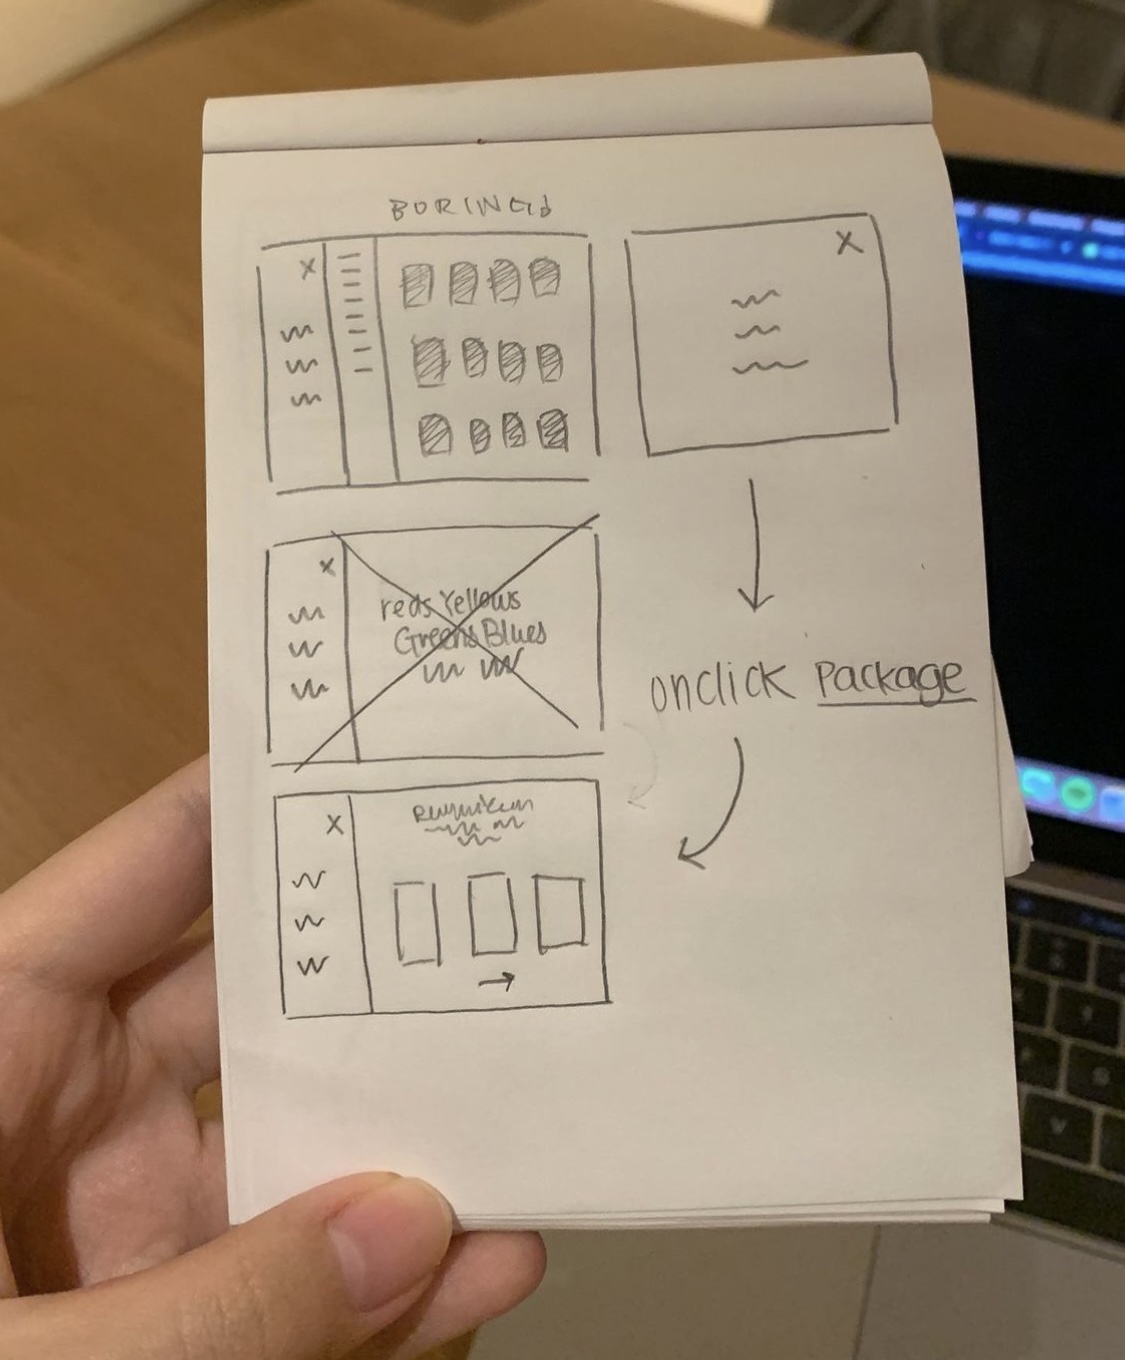 X
X
X
reds Yellows
Greens Blues
onclick Package
X